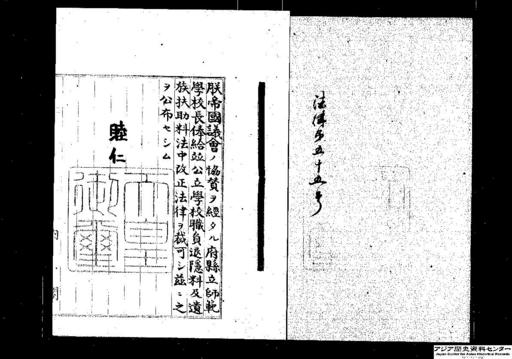 法律第五十五号
朕帝國議會ノ協贊ヲ經タル府縣立師範
學校長俸給竝公立學校職員退隱料及遺
族扶助料法中改正法律ヲ裁可シ茲ニ之
ヲ公布セシム
睦仁
天皇
御璽
アジア歴史資料センター
Japan Center for Asian Historical Records